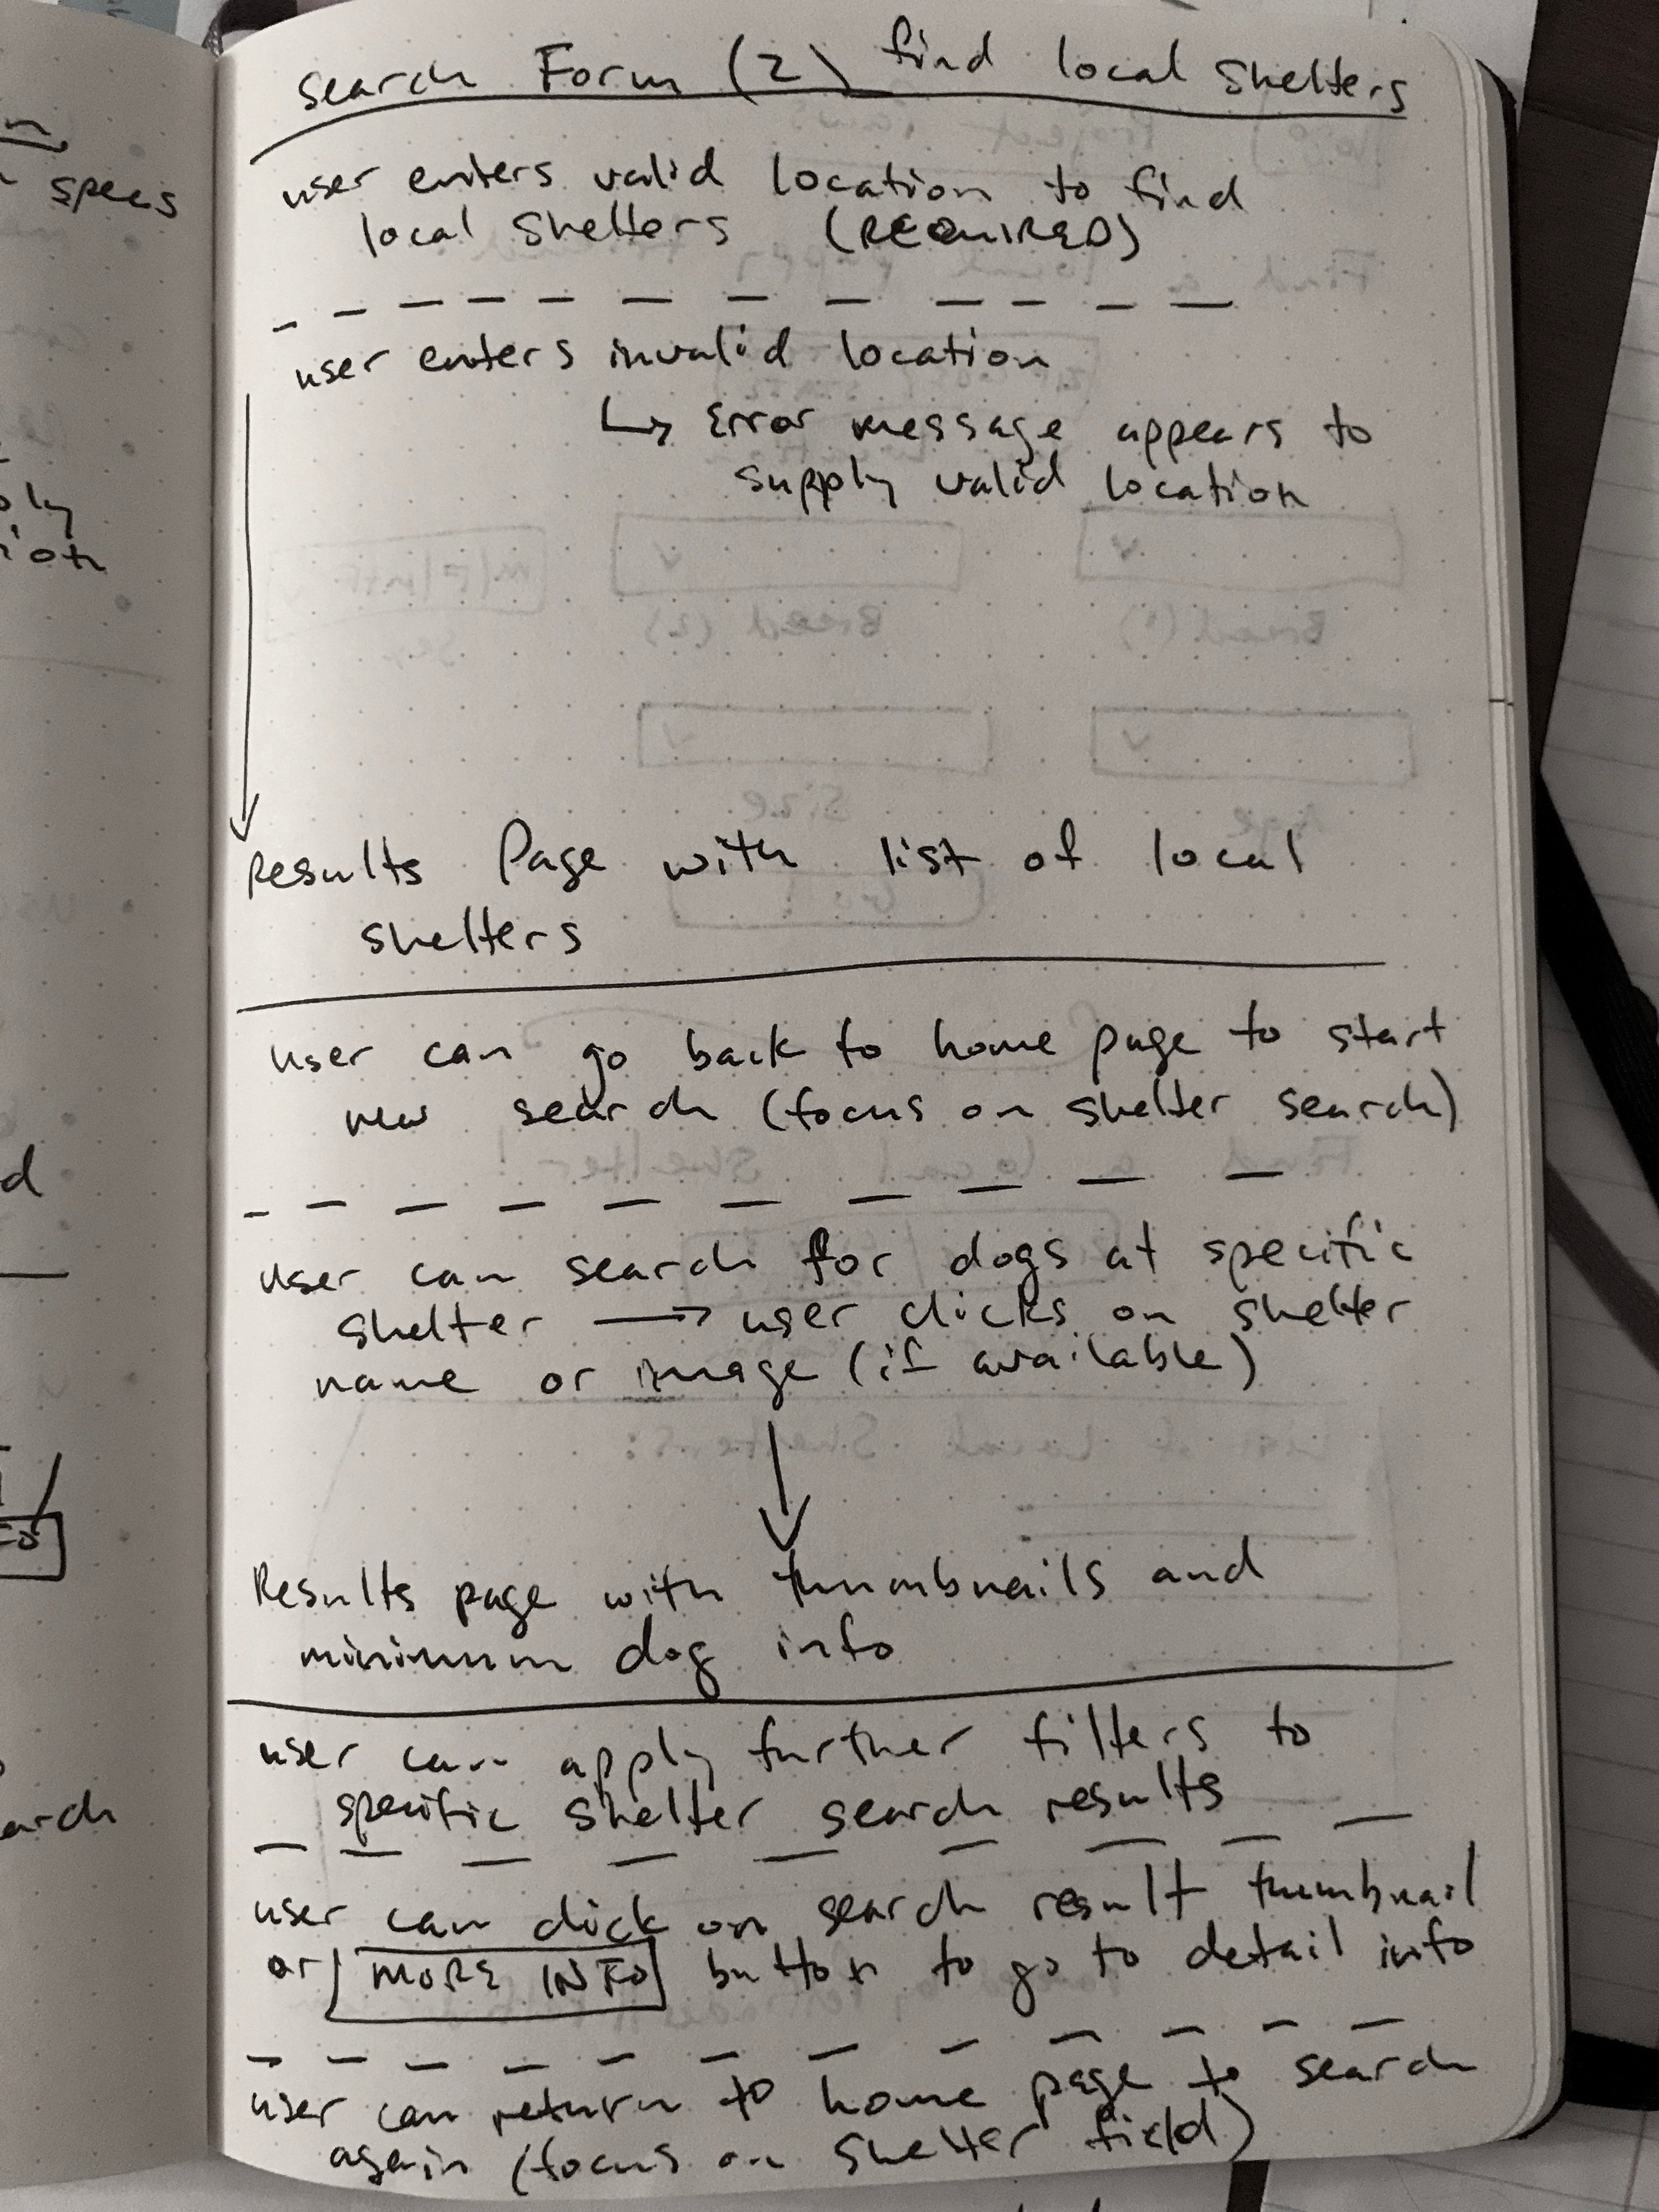 search Form (2) find local shelters
user enters valid location to find
local shelters (REQUIRED)
user enters invalid location
↳ Error message appears to
supply valid location
Results Page with list of local
shelters
user can go back to home page to start
new search (focus on shelter search)
user can search for dogs at specific
shelter → user clicks on shelter
name or image (if available)
Results page with thumbnails and
minimum dog info
user can apply further filters to
specific shelter search results
user can click on search result thumbnail
or MORE INFO button to go to detail info
user can return to home page to search
again (focus on shelter field)
specs